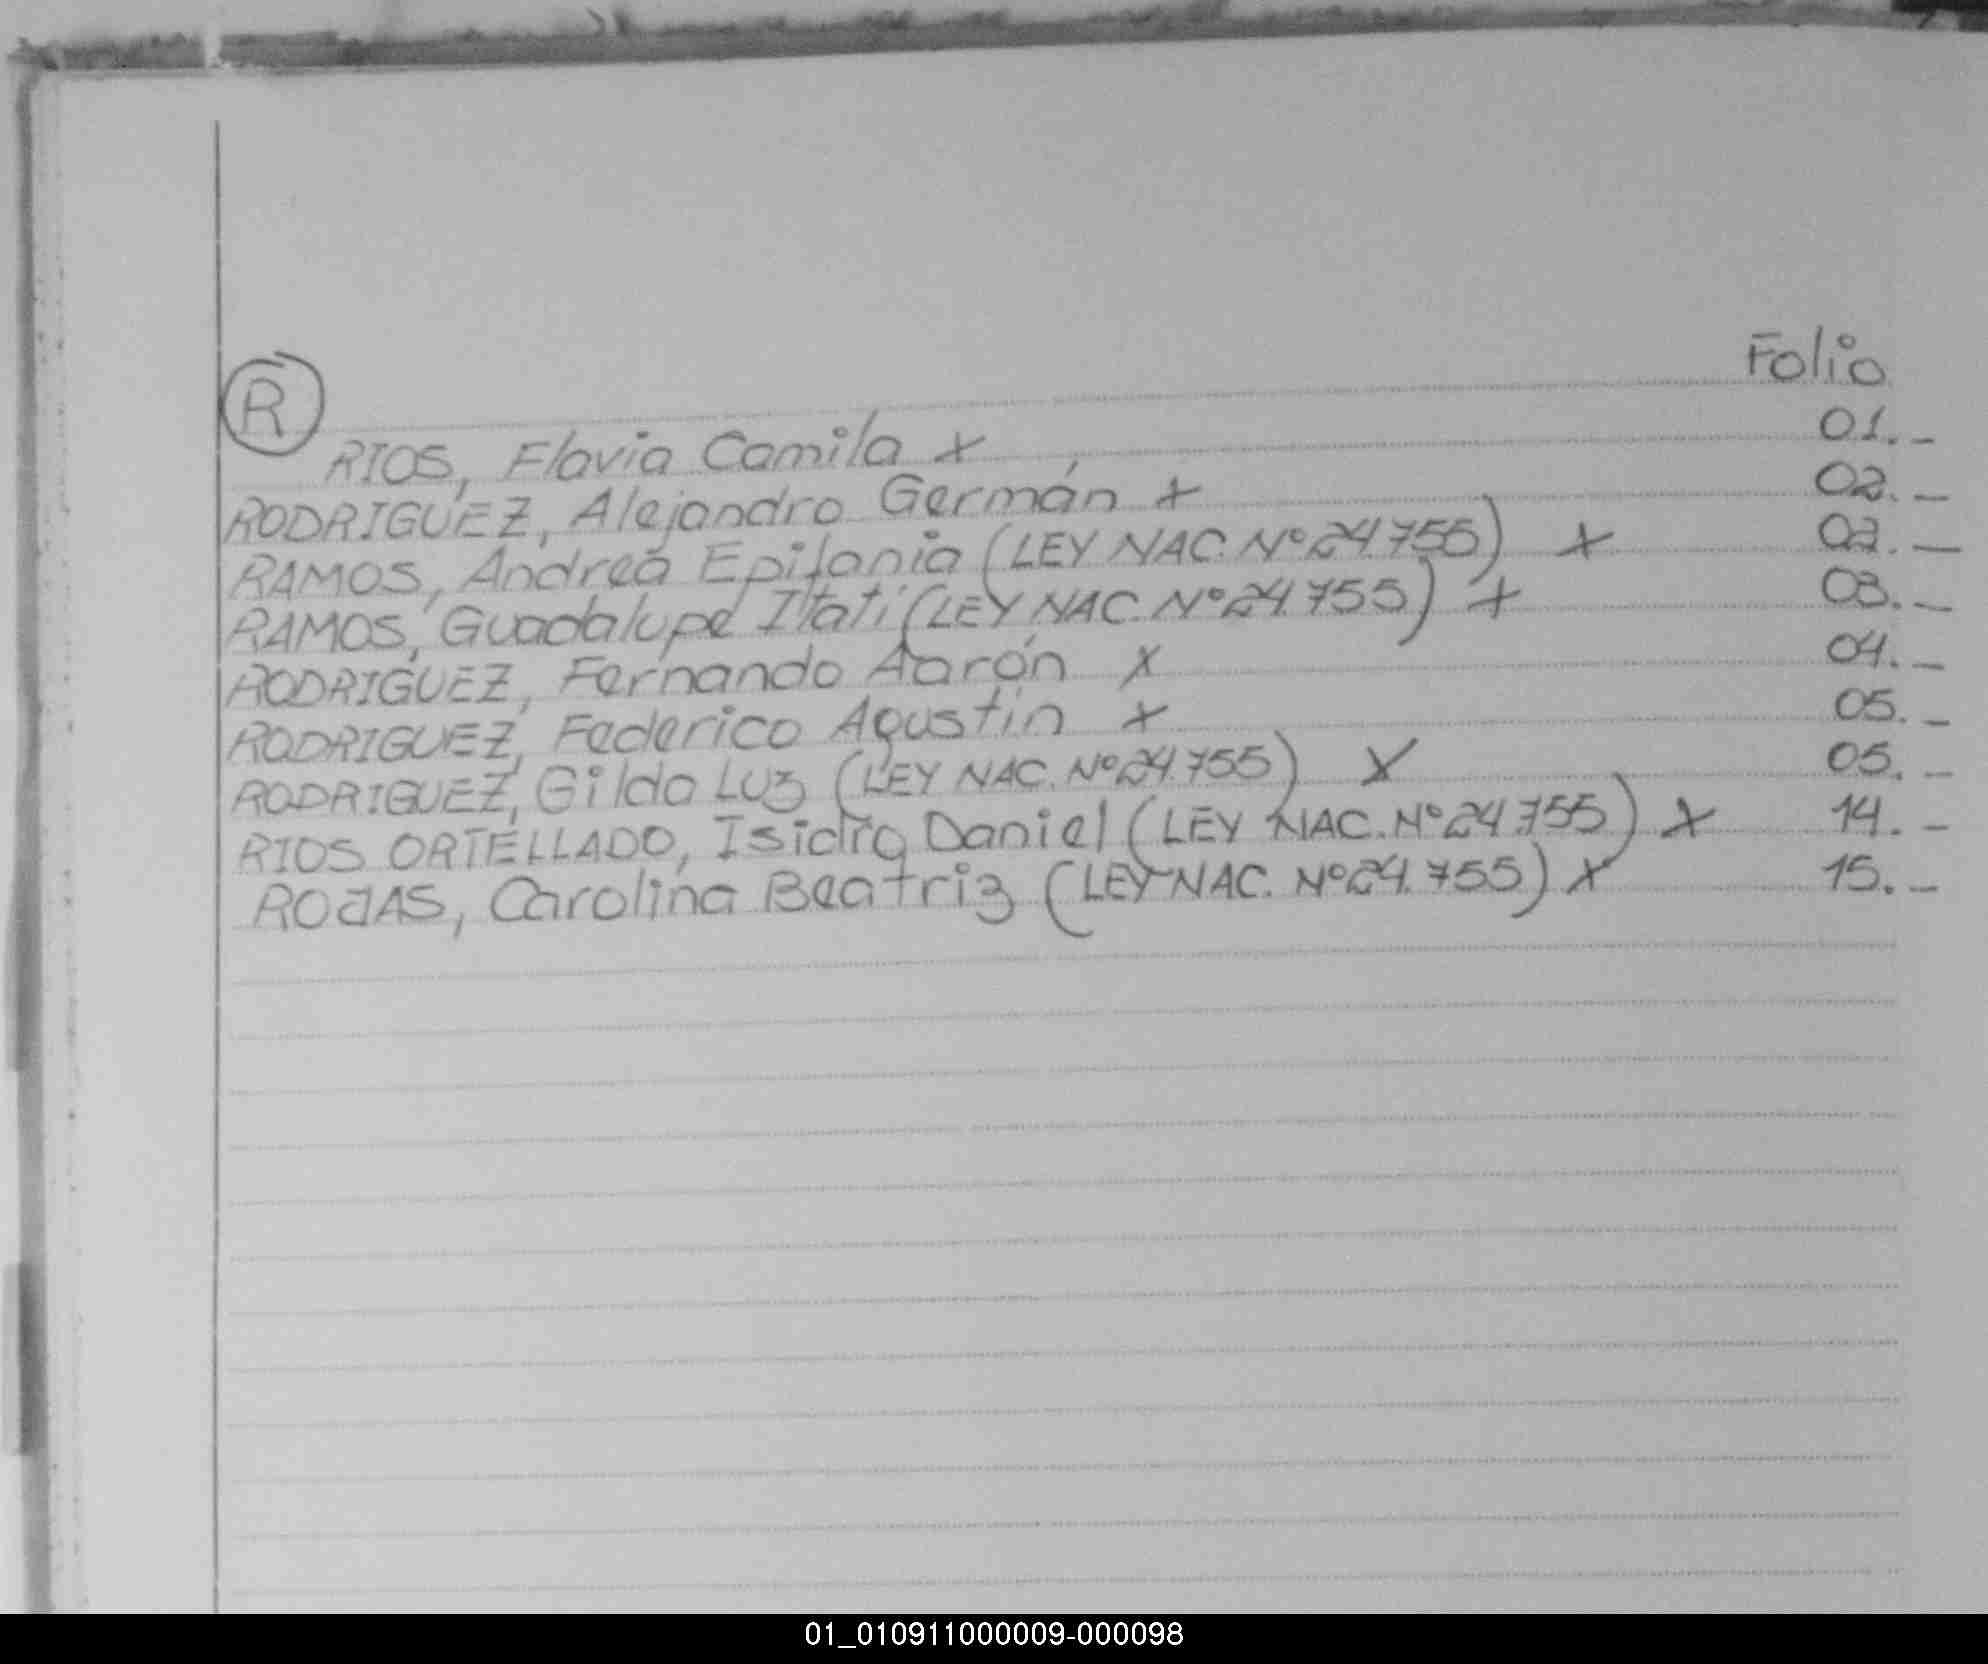 Folio
(R)
RIOS, Flavia Camila x 01.-
RODRIGUEZ, Alejandro Germán x 02.-
RAMOS, Andrea Epifania (LEY NAC. Nº 24755) x 02.-
RAMOS, Guadalupe Itati (LEY NAC. Nº 24.755) x 03.-
RODRIGUEZ, Fernando Aarón x 04.-
RODRIGUEZ, Federico Agustín x 05.-
RODRIGUEZ, Gilda Luz (LEY NAC. Nº 24.755) x 05.-
RIOS ORTELLADO, Isidro Daniel (LEY NAC. Nº 24.755) x 14.-
ROJAS, Carolina Beatriz (LEY NAC. Nº 24.755) x 15.-
01_010911000009-000098